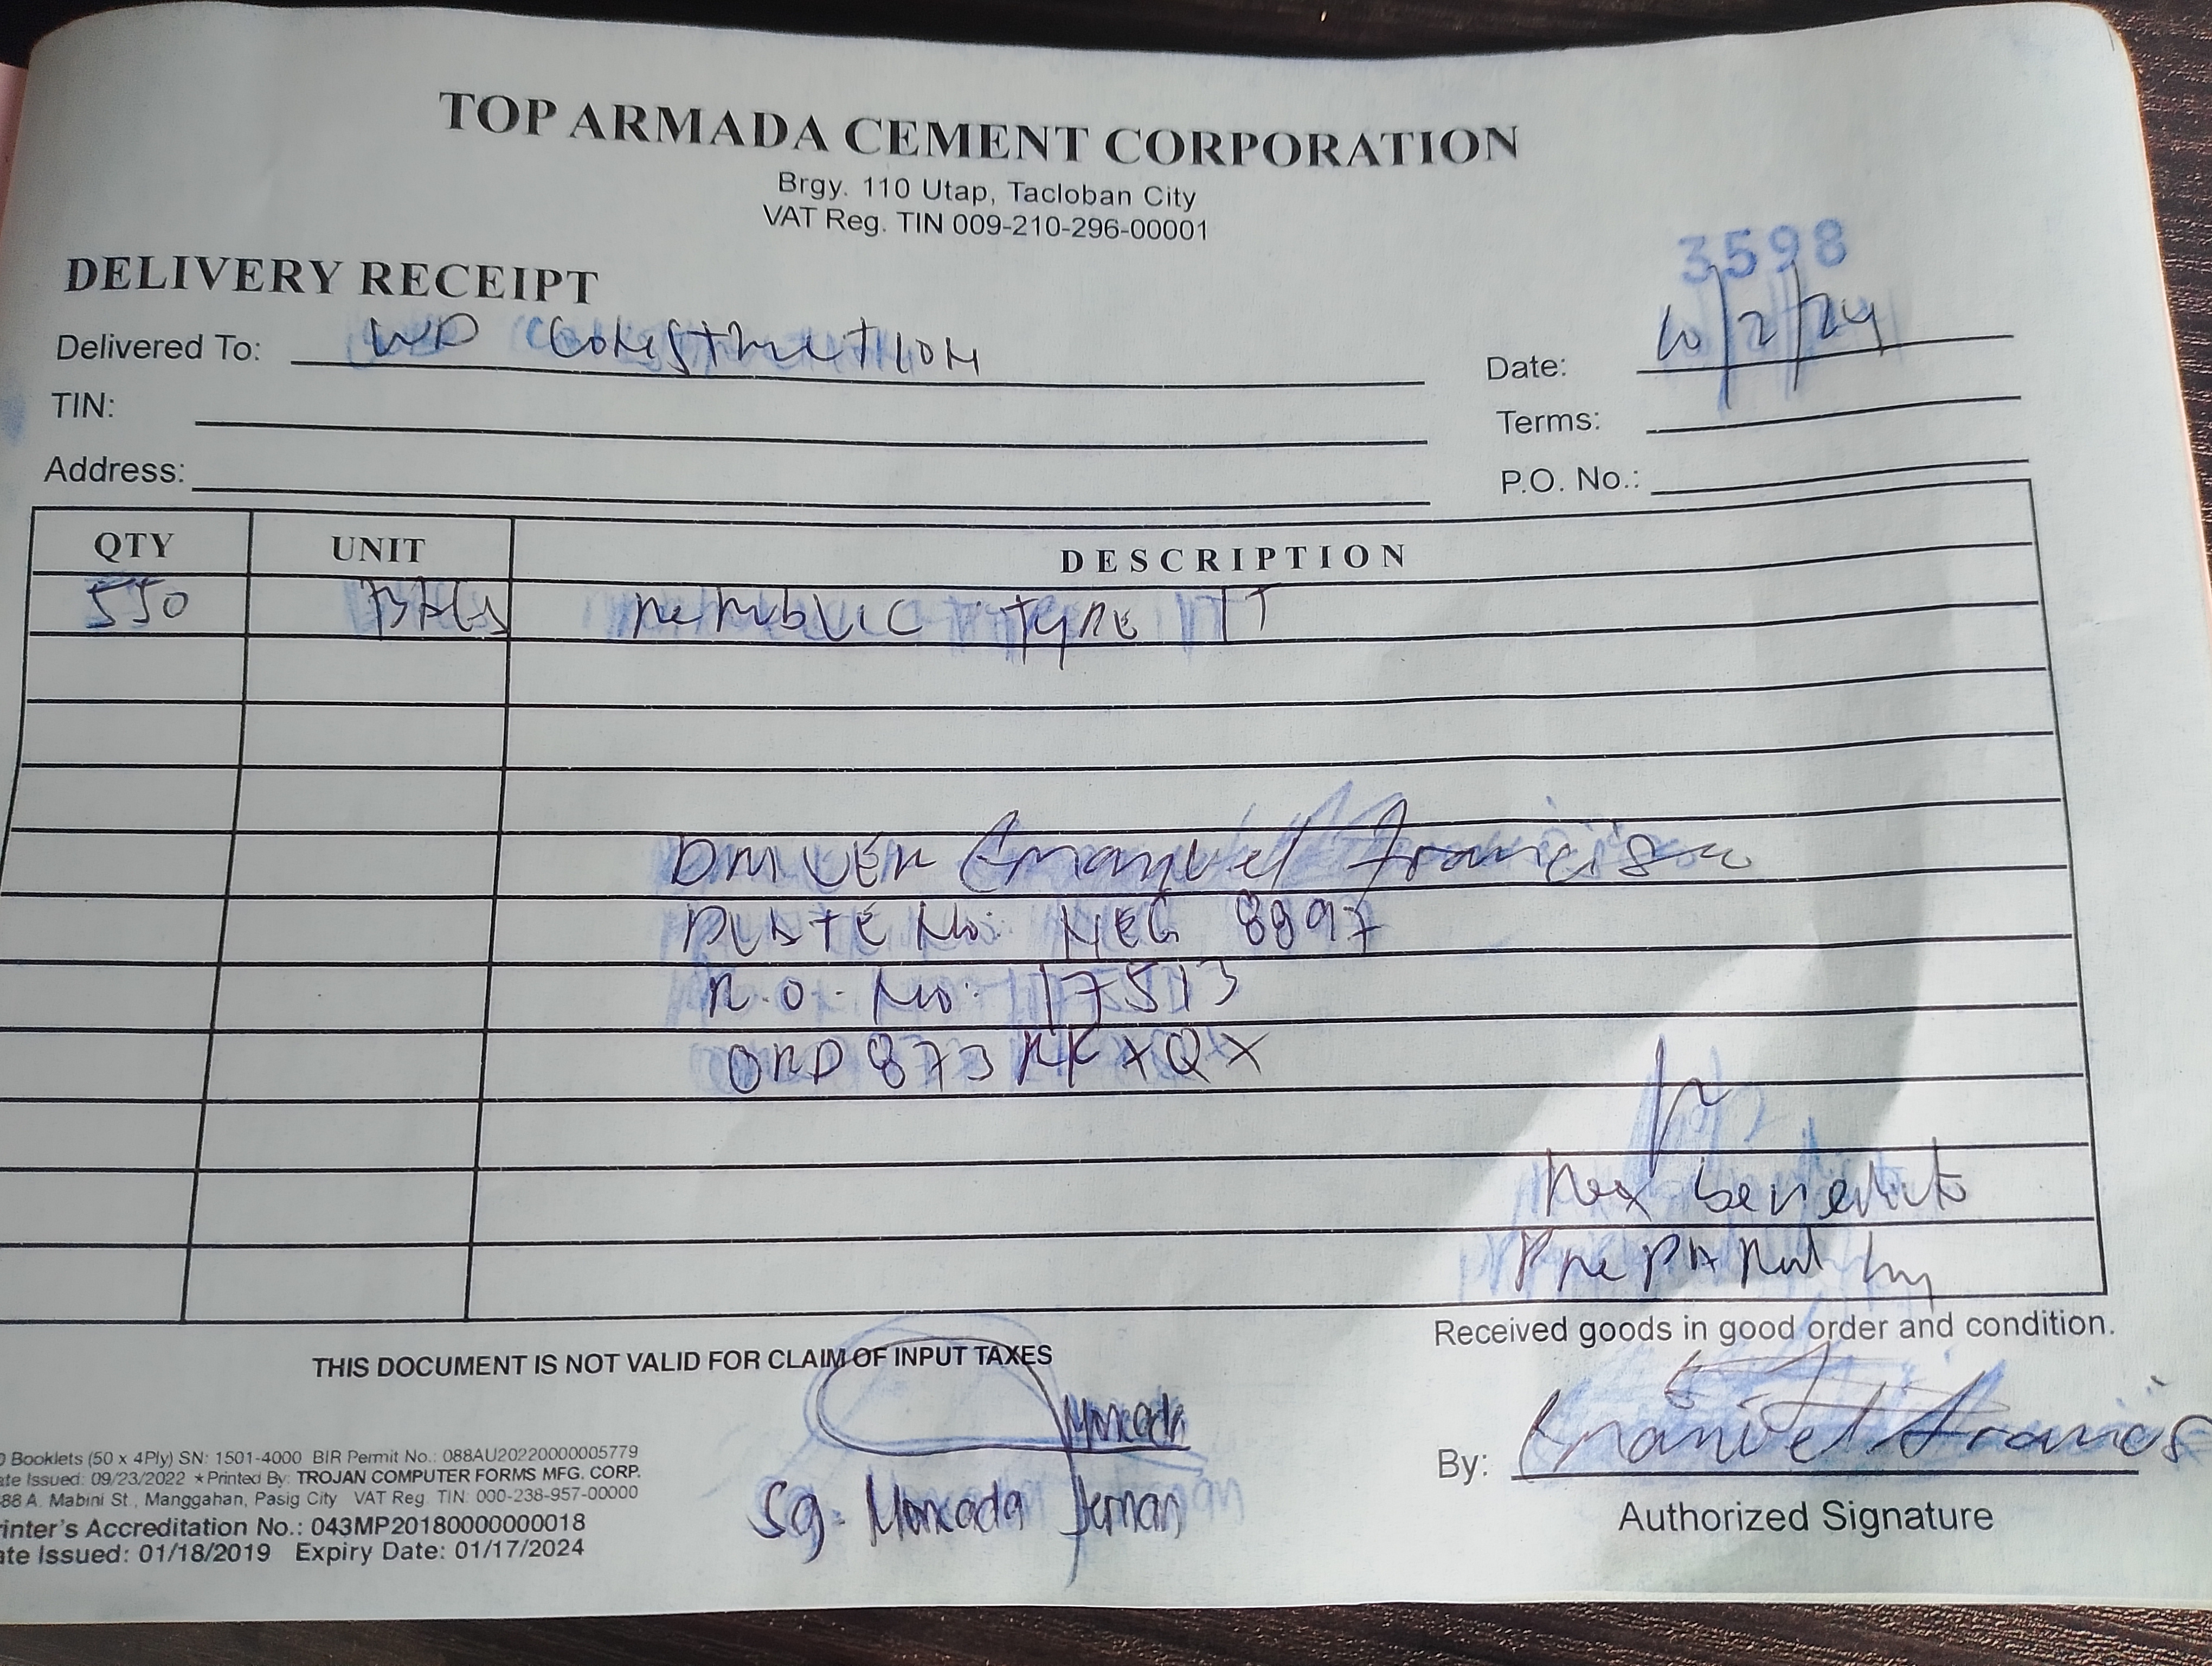 TOP ARMADA CEMENT CORPORATION
Brgy. 110 Utap, Tacloban City
VAT Reg. TIN 009-210-296-00001
3598
DELIVERY RECEIPT
Delivered To: WD Construction
Date: 10/2/24
TIN:
Terms:
Address:
P.O. No.:
QTY UNIT DESCRIPTION
550 BAGS Republic Type IT
DRIVER Emanuel Francisco
PLATE No: NEG 8897
P.O. No: 17513
ORD 873 RKXQX
Rex benedicto
Prepared by
Received goods in good order and condition.
THIS DOCUMENT IS NOT VALID FOR CLAIM OF INPUT TAXES
Moncada
Sg. Moncada Jernan
By: Emanuel Francis
Authorized Signature
0 Booklets (50 x 4Ply) SN: 1501-4000 BIR Permit No.: 088AU20220000005779
ate Issued: 09/23/2022 ★Printed By: TROJAN COMPUTER FORMS MFG. CORP.
88 A. Mabini St., Manggahan, Pasig City VAT Reg. TIN: 000-238-957-00000
rinter's Accreditation No.: 043MP20180000000018
ate Issued: 01/18/2019 Expiry Date: 01/17/2024